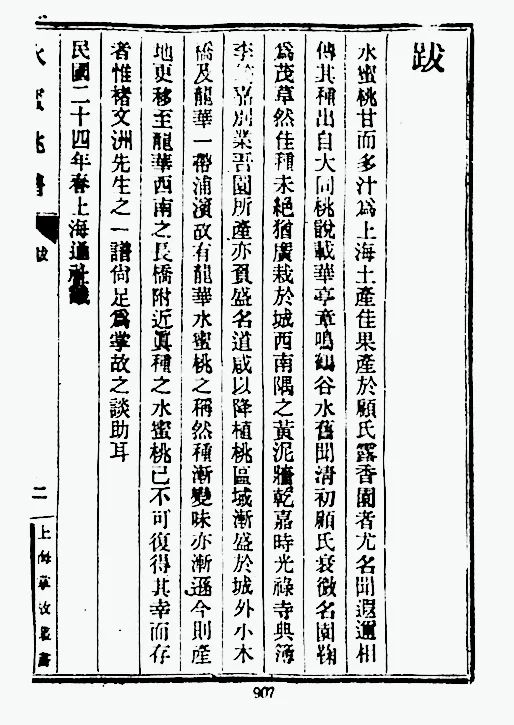 跋
水蜜桃甘而多汁爲上海土產佳果產於顧氏露香園者尤名聞遐邇相
傳其種出自大同桃說載華亭章鳴鶴谷水舊聞清初顧氏衰微名園鞠
爲茂草然佳種未絕猶廣栽於城西南隅之黃泥牆乾嘉時光祿寺典簿
李嘉別業吾園所產亦負盛名道咸以降植桃區域漸盛於城外小木
橋及龍華一帶浦濱故有龍華水蜜桃之稱然種漸變味亦漸遜今則產
地更移至龍華西南之長橋附近眞種之水蜜桃已不可復得其幸而存
者惟褚文洲先生之一譜尙足爲掌故之談助耳
民國二十四年春上海通社識
水蜜桃譜
跋
二
上海掌故叢書
907